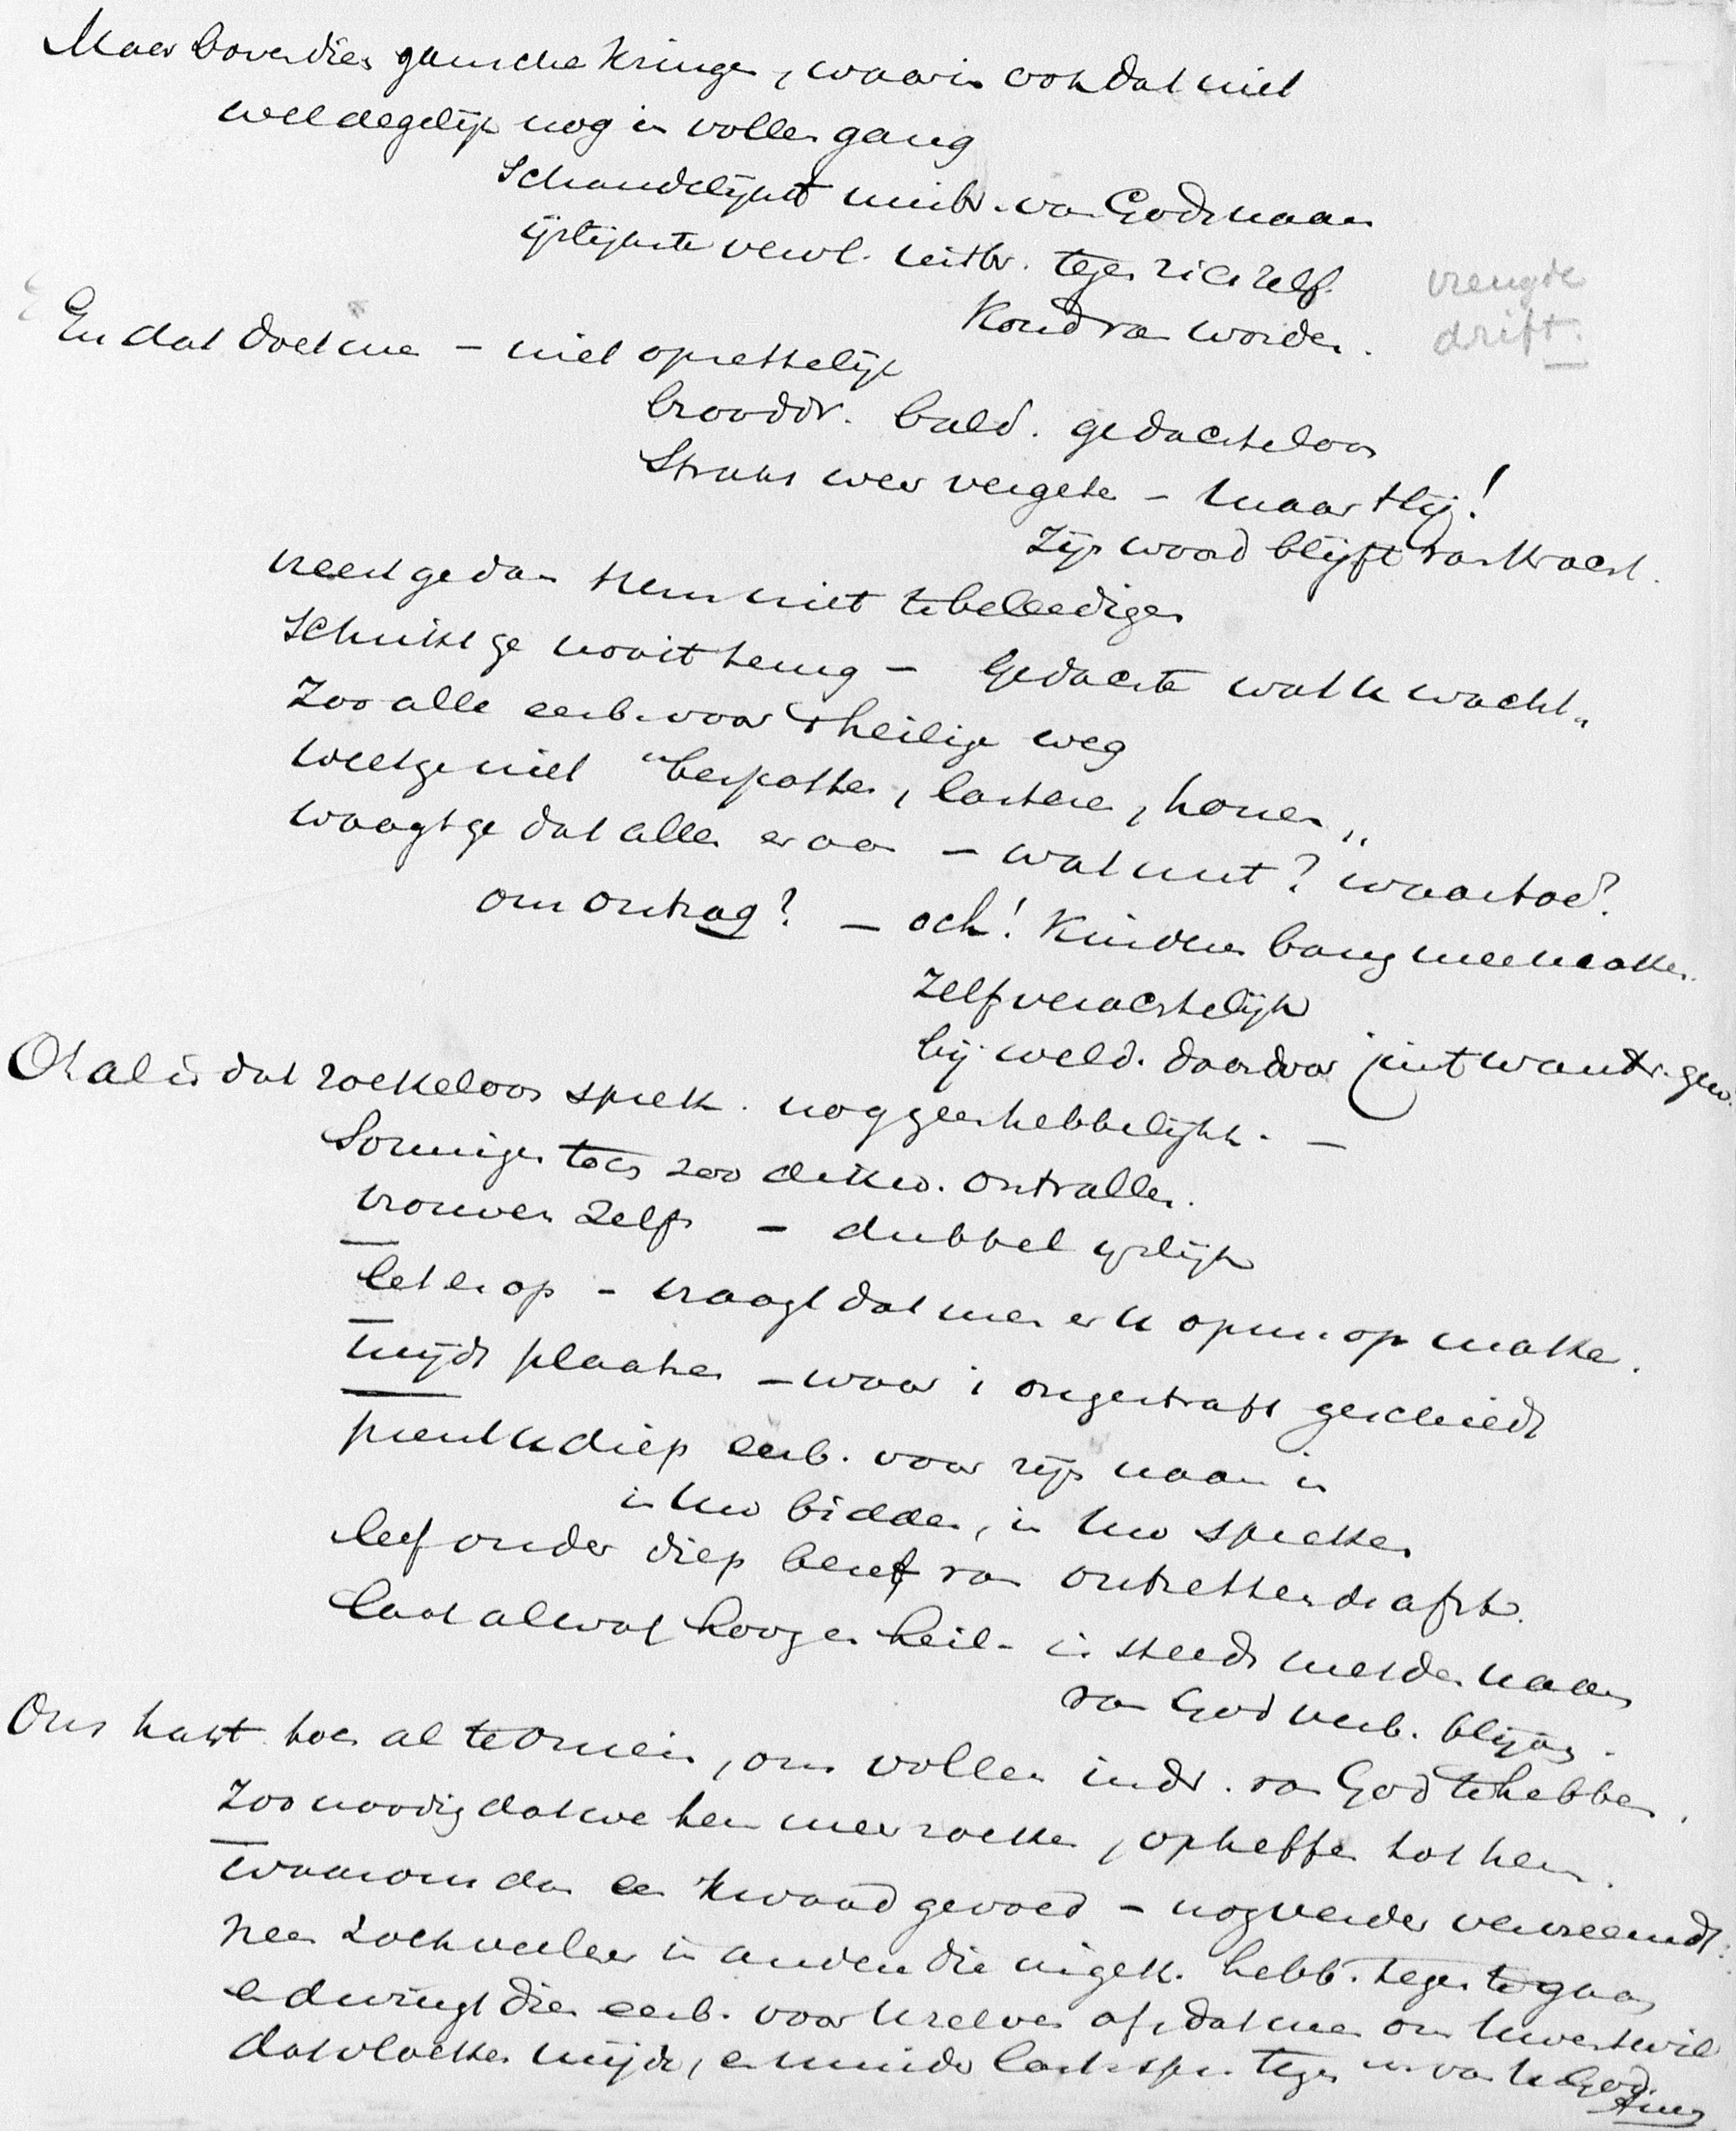 Maar boven dien gansche kringen, waarin ook dat niet
weldegelijk nog in vollen gang
schandelijkst misbr. van Gods naam
ijslijkste verwl. uitbr. tegen zich zelf.
Koud van worden.
vreugde
drift.
En dat doet me – niet opzettelijk
brooddr. bald. gedachteloos
Straks weer vergeten – maar Hij!
Zijn woord blijft van kracht.
vreest ge dan Hem niet te beleedigen
schrikt ge nooit terug – Gedachte wat u wacht„
Zoo alle eerb. voor 't heilige weg
weet ge niet "bespotten, lasteren, honen„
waagt ge dat alles er aan – wat nut? waartoe?
om ontzag? – och! Kinderen bang mee maken.
Zelf verachtelijk
bij weld. daardoor juist wantr. gew.
Of al is dat roekeloos sprek. nog geen hebbelijkh. –
Sommigen toch zoo dikw. ontvallen.
vrouwen zelfs – dubbel ijslijk
let er op – vraagt dat men er u opm. op make.
mijdt plaatsen – waar 't ongestraft geschiedt
prent u diep eerb. voor zijn naam in
in Uw bidden, in Uw spreken
leef onder diep besef van ontzettende afst.
laat al wat hoog en heil. is steeds met den naam
van God verb. blijven.
Ons hart toch al te onrein, om vollen indr. van God te hebben.
Zoo noodig dat we hem meer zoeken, opheffen tot hem.
waarom dan een kwaad gevoed – nog verder vervreemdt.
neen zoek veeleer in anderen die ingek. hebb. tegen te gaan
en dwingt dien eerb. voor U zelven af, dat men om Uwentwil
dat vloeken mijde, en minder last. spr. tegen u van U God